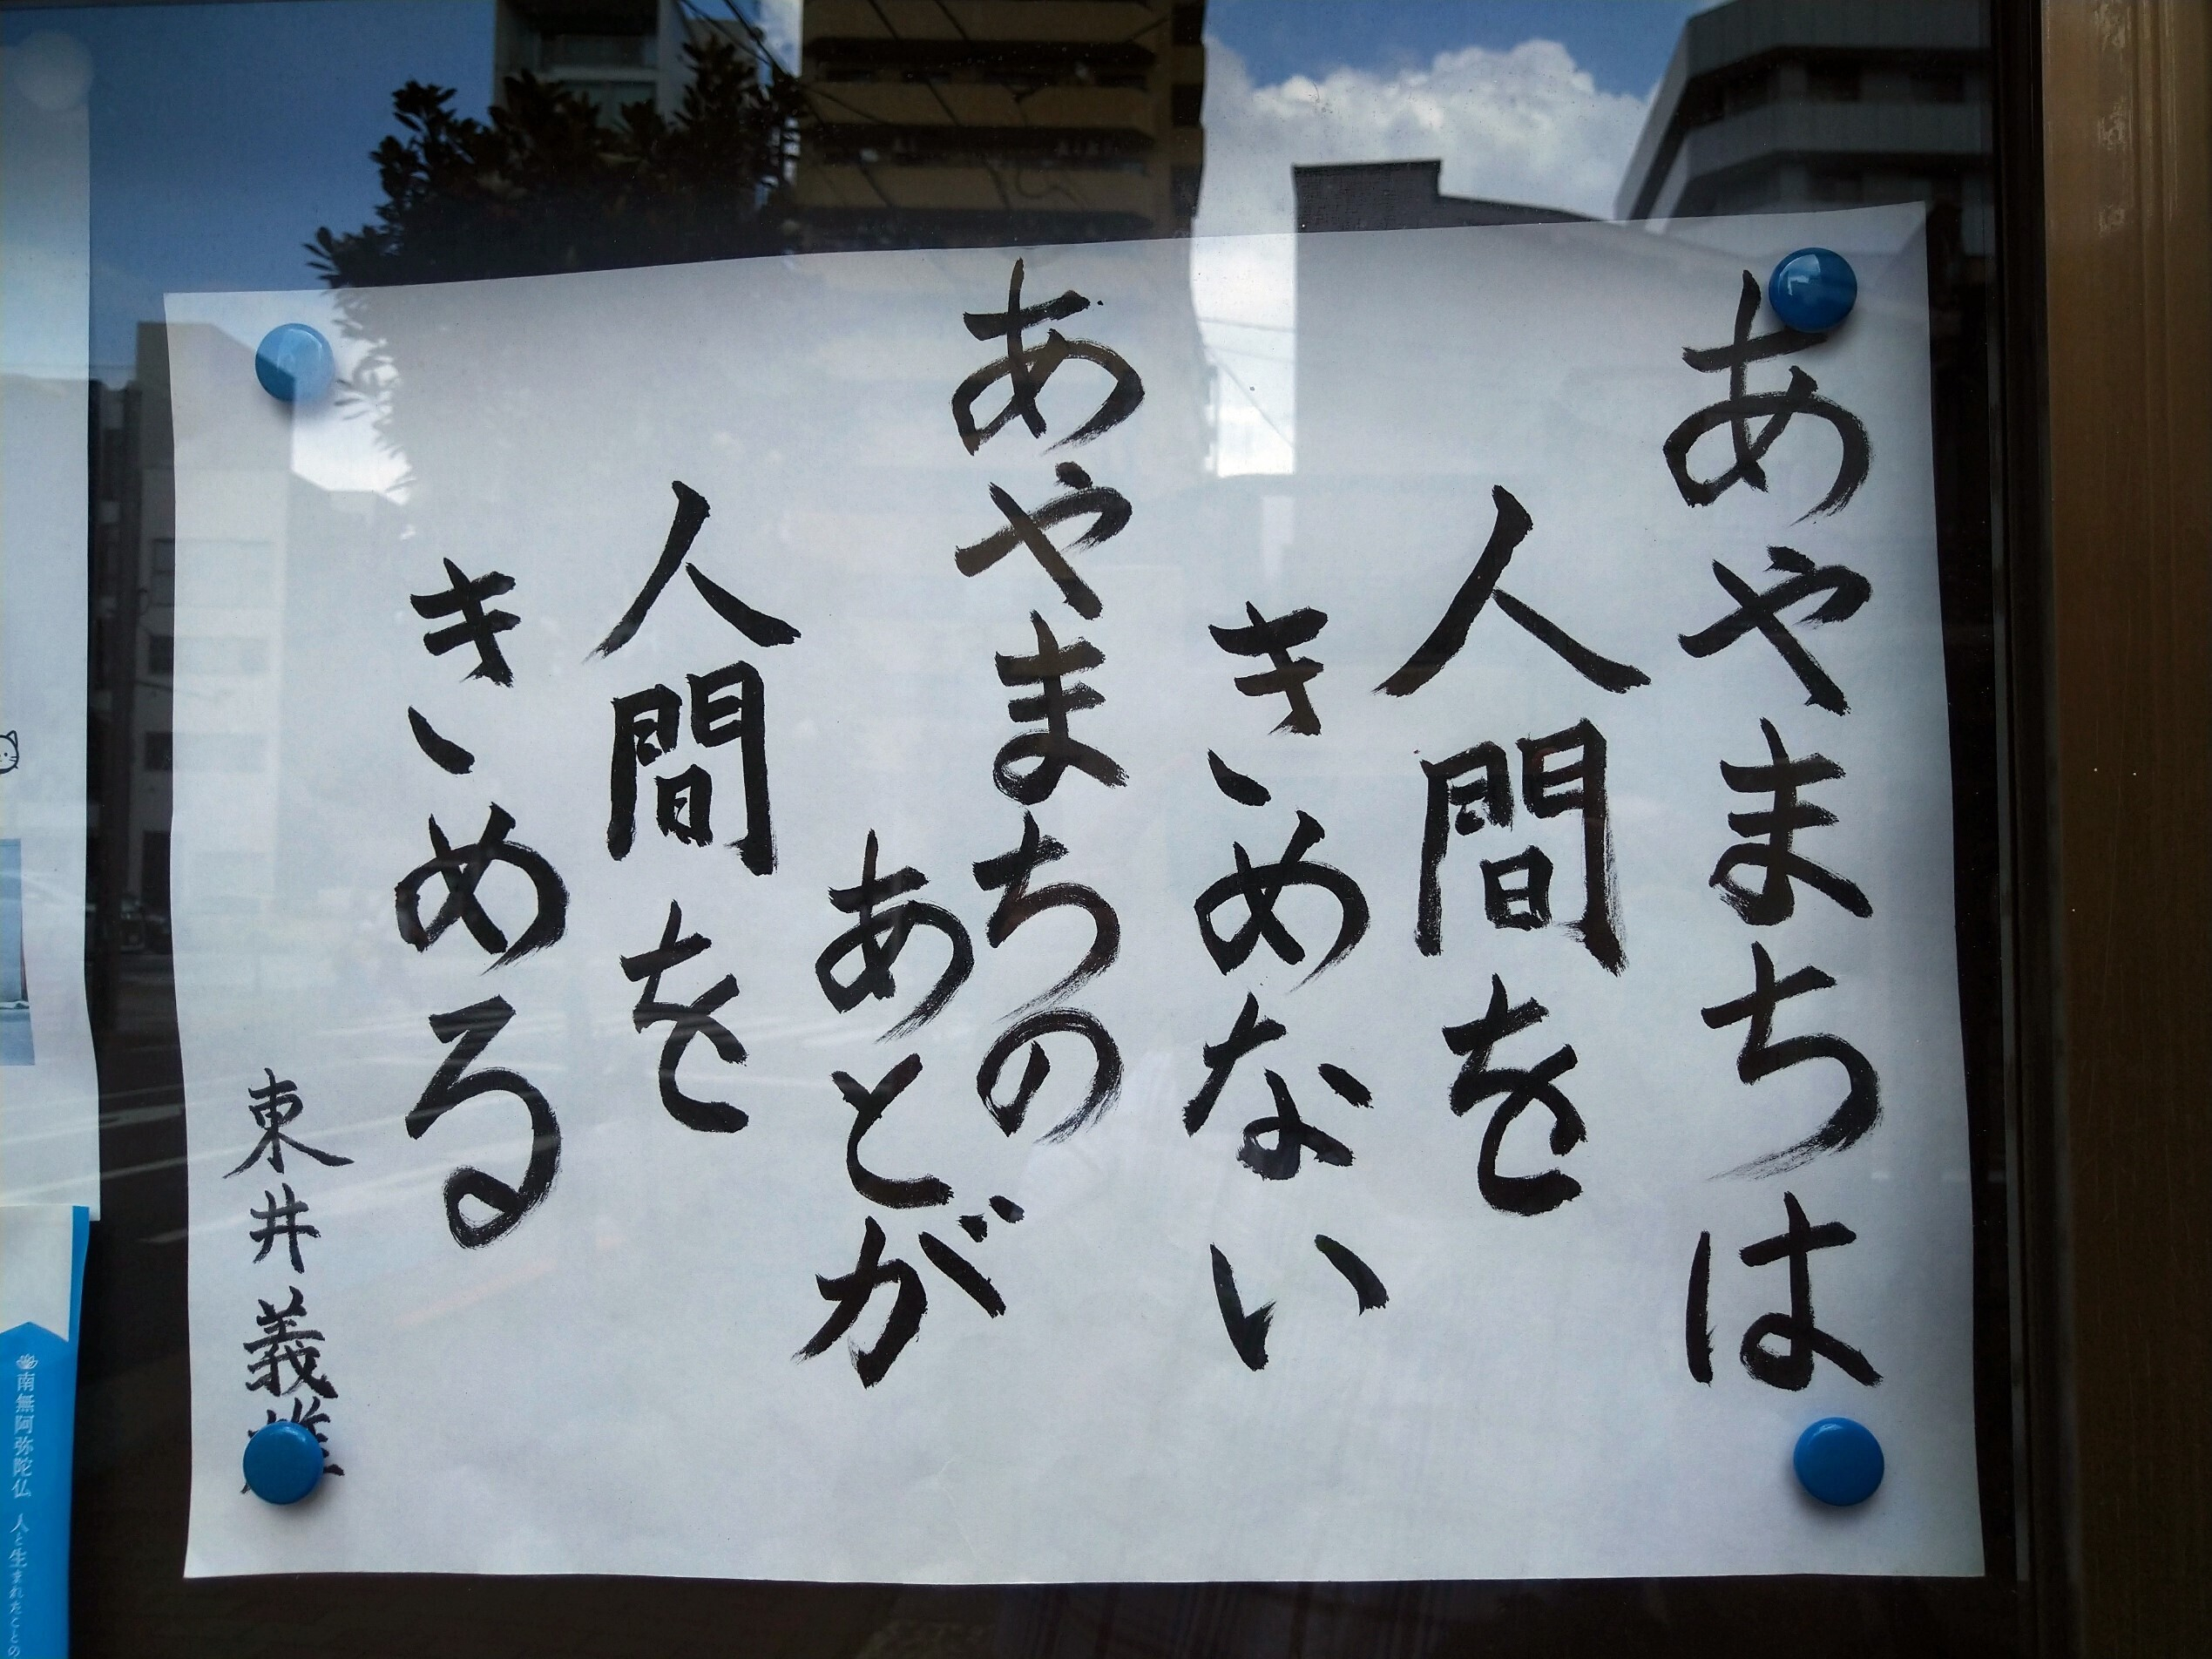 あやまちは
人間を
きめない
あやまちの
あとが
人間を
きめる
東井義雄
南無阿弥陀仏 人と生まれたことの